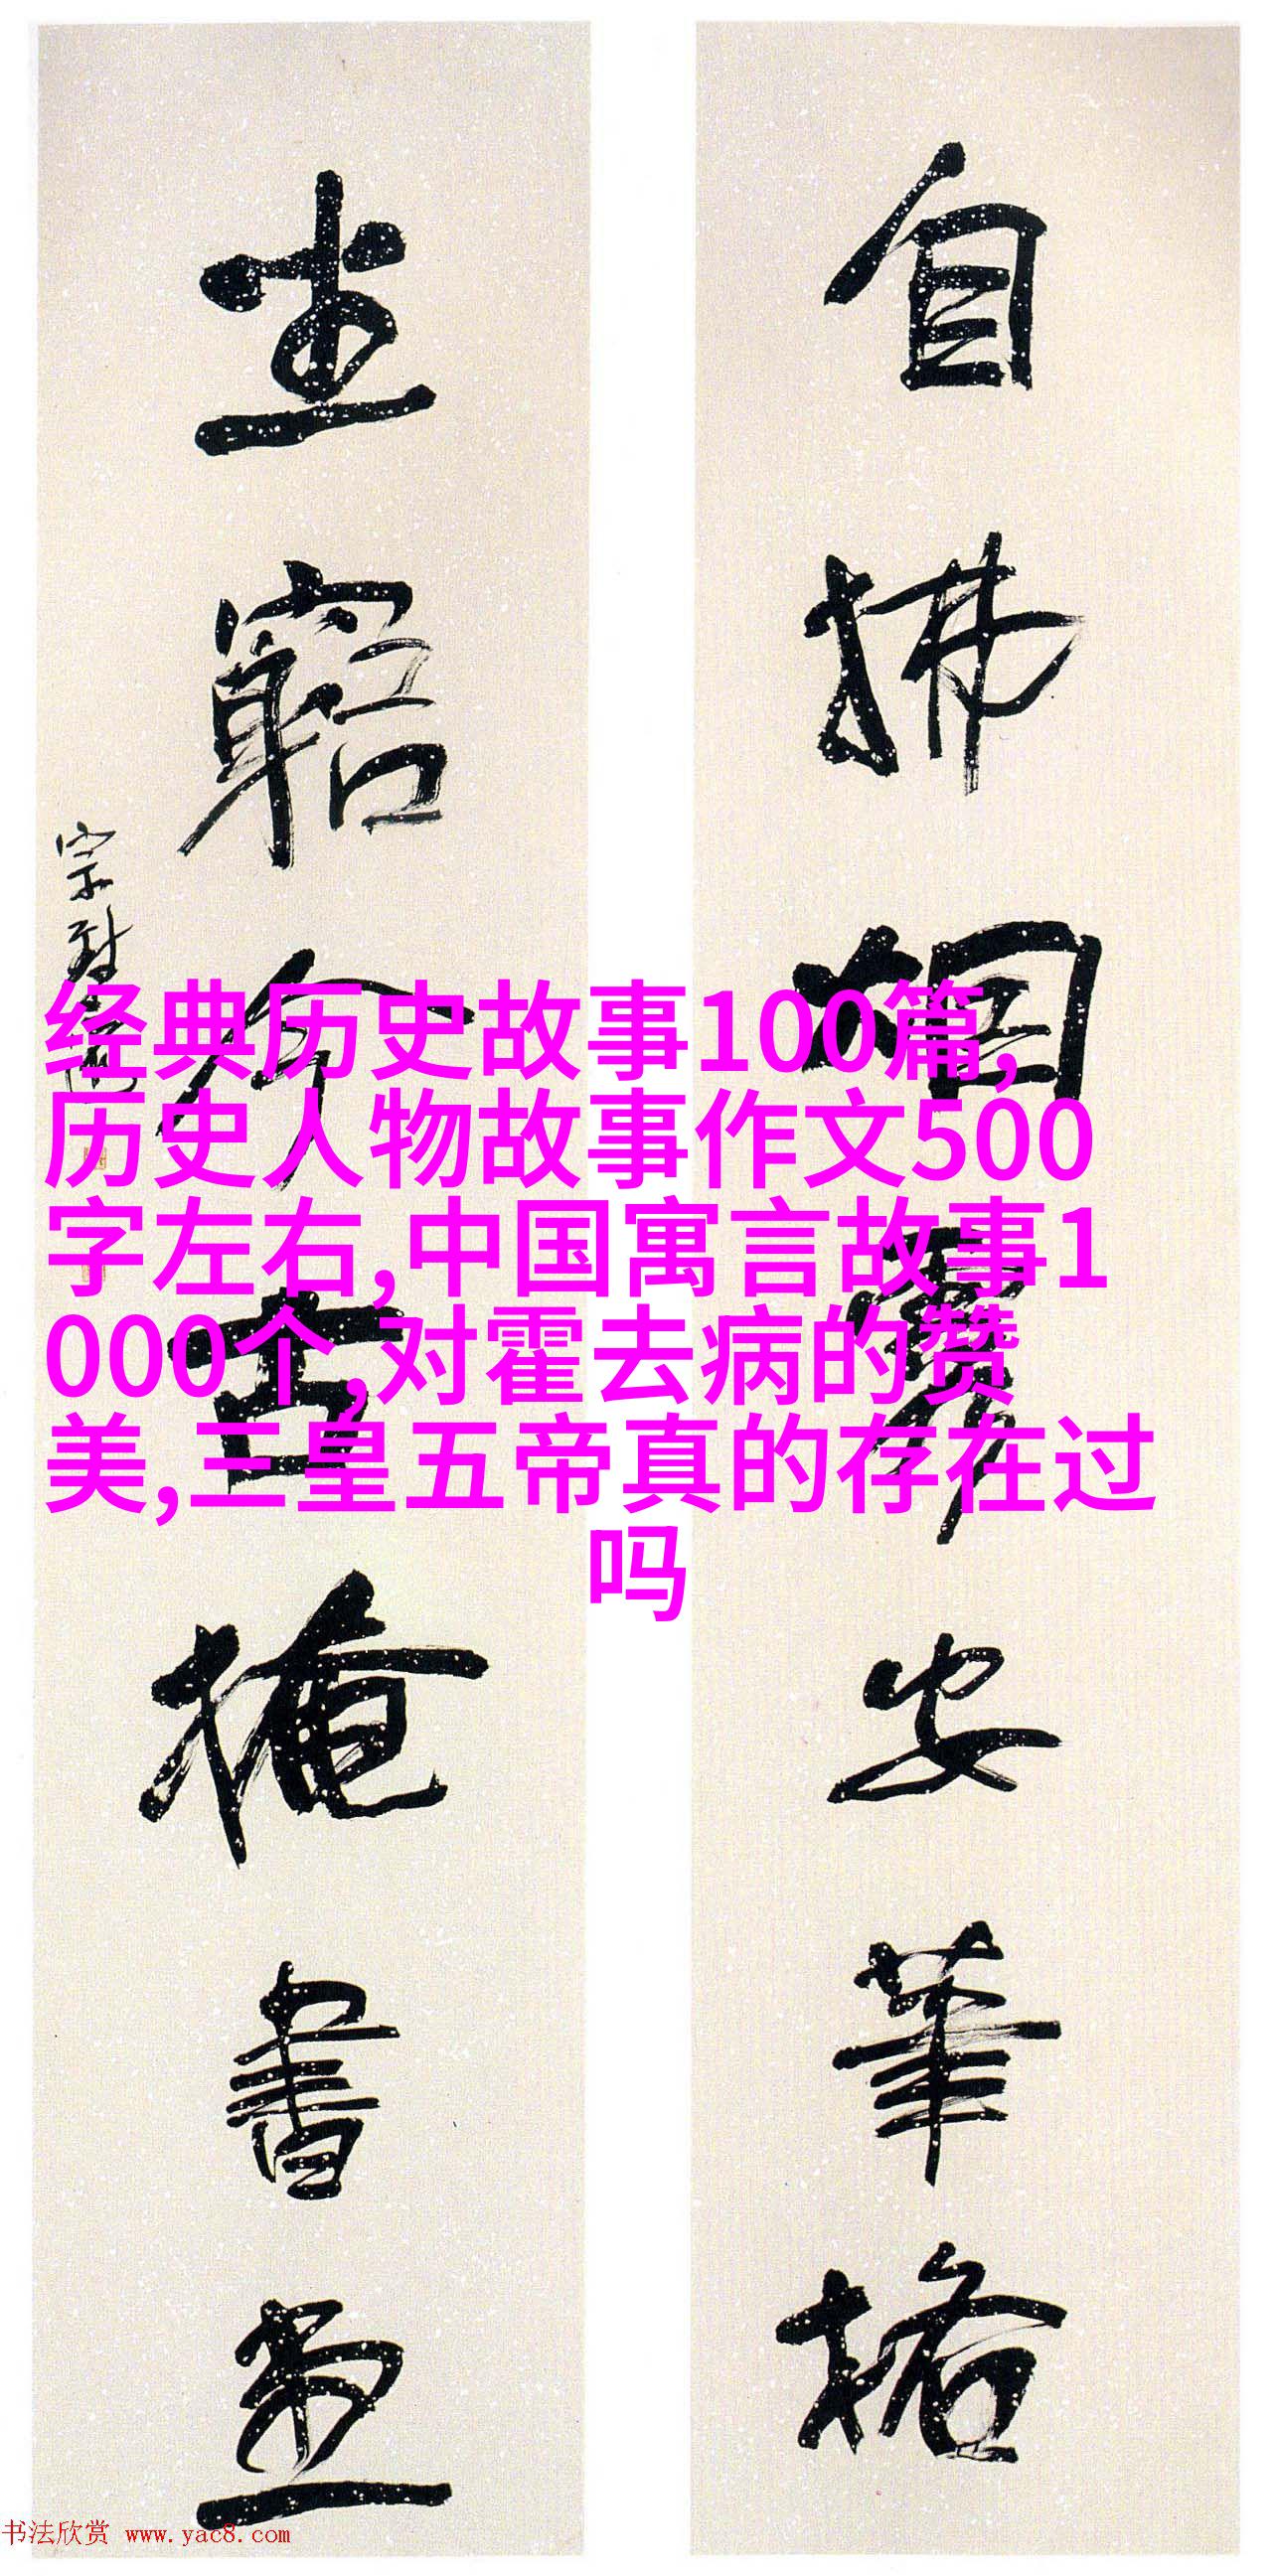 自拂烟霞安筆格
坐窮今古掩書堂
经典历史故事100篇,
历史人物故事作文500
字左右,中国寓言故事1
000个,对霍去病的赞
美,三皇五帝真的存在过
吗
书法欣赏 www.yac8.com